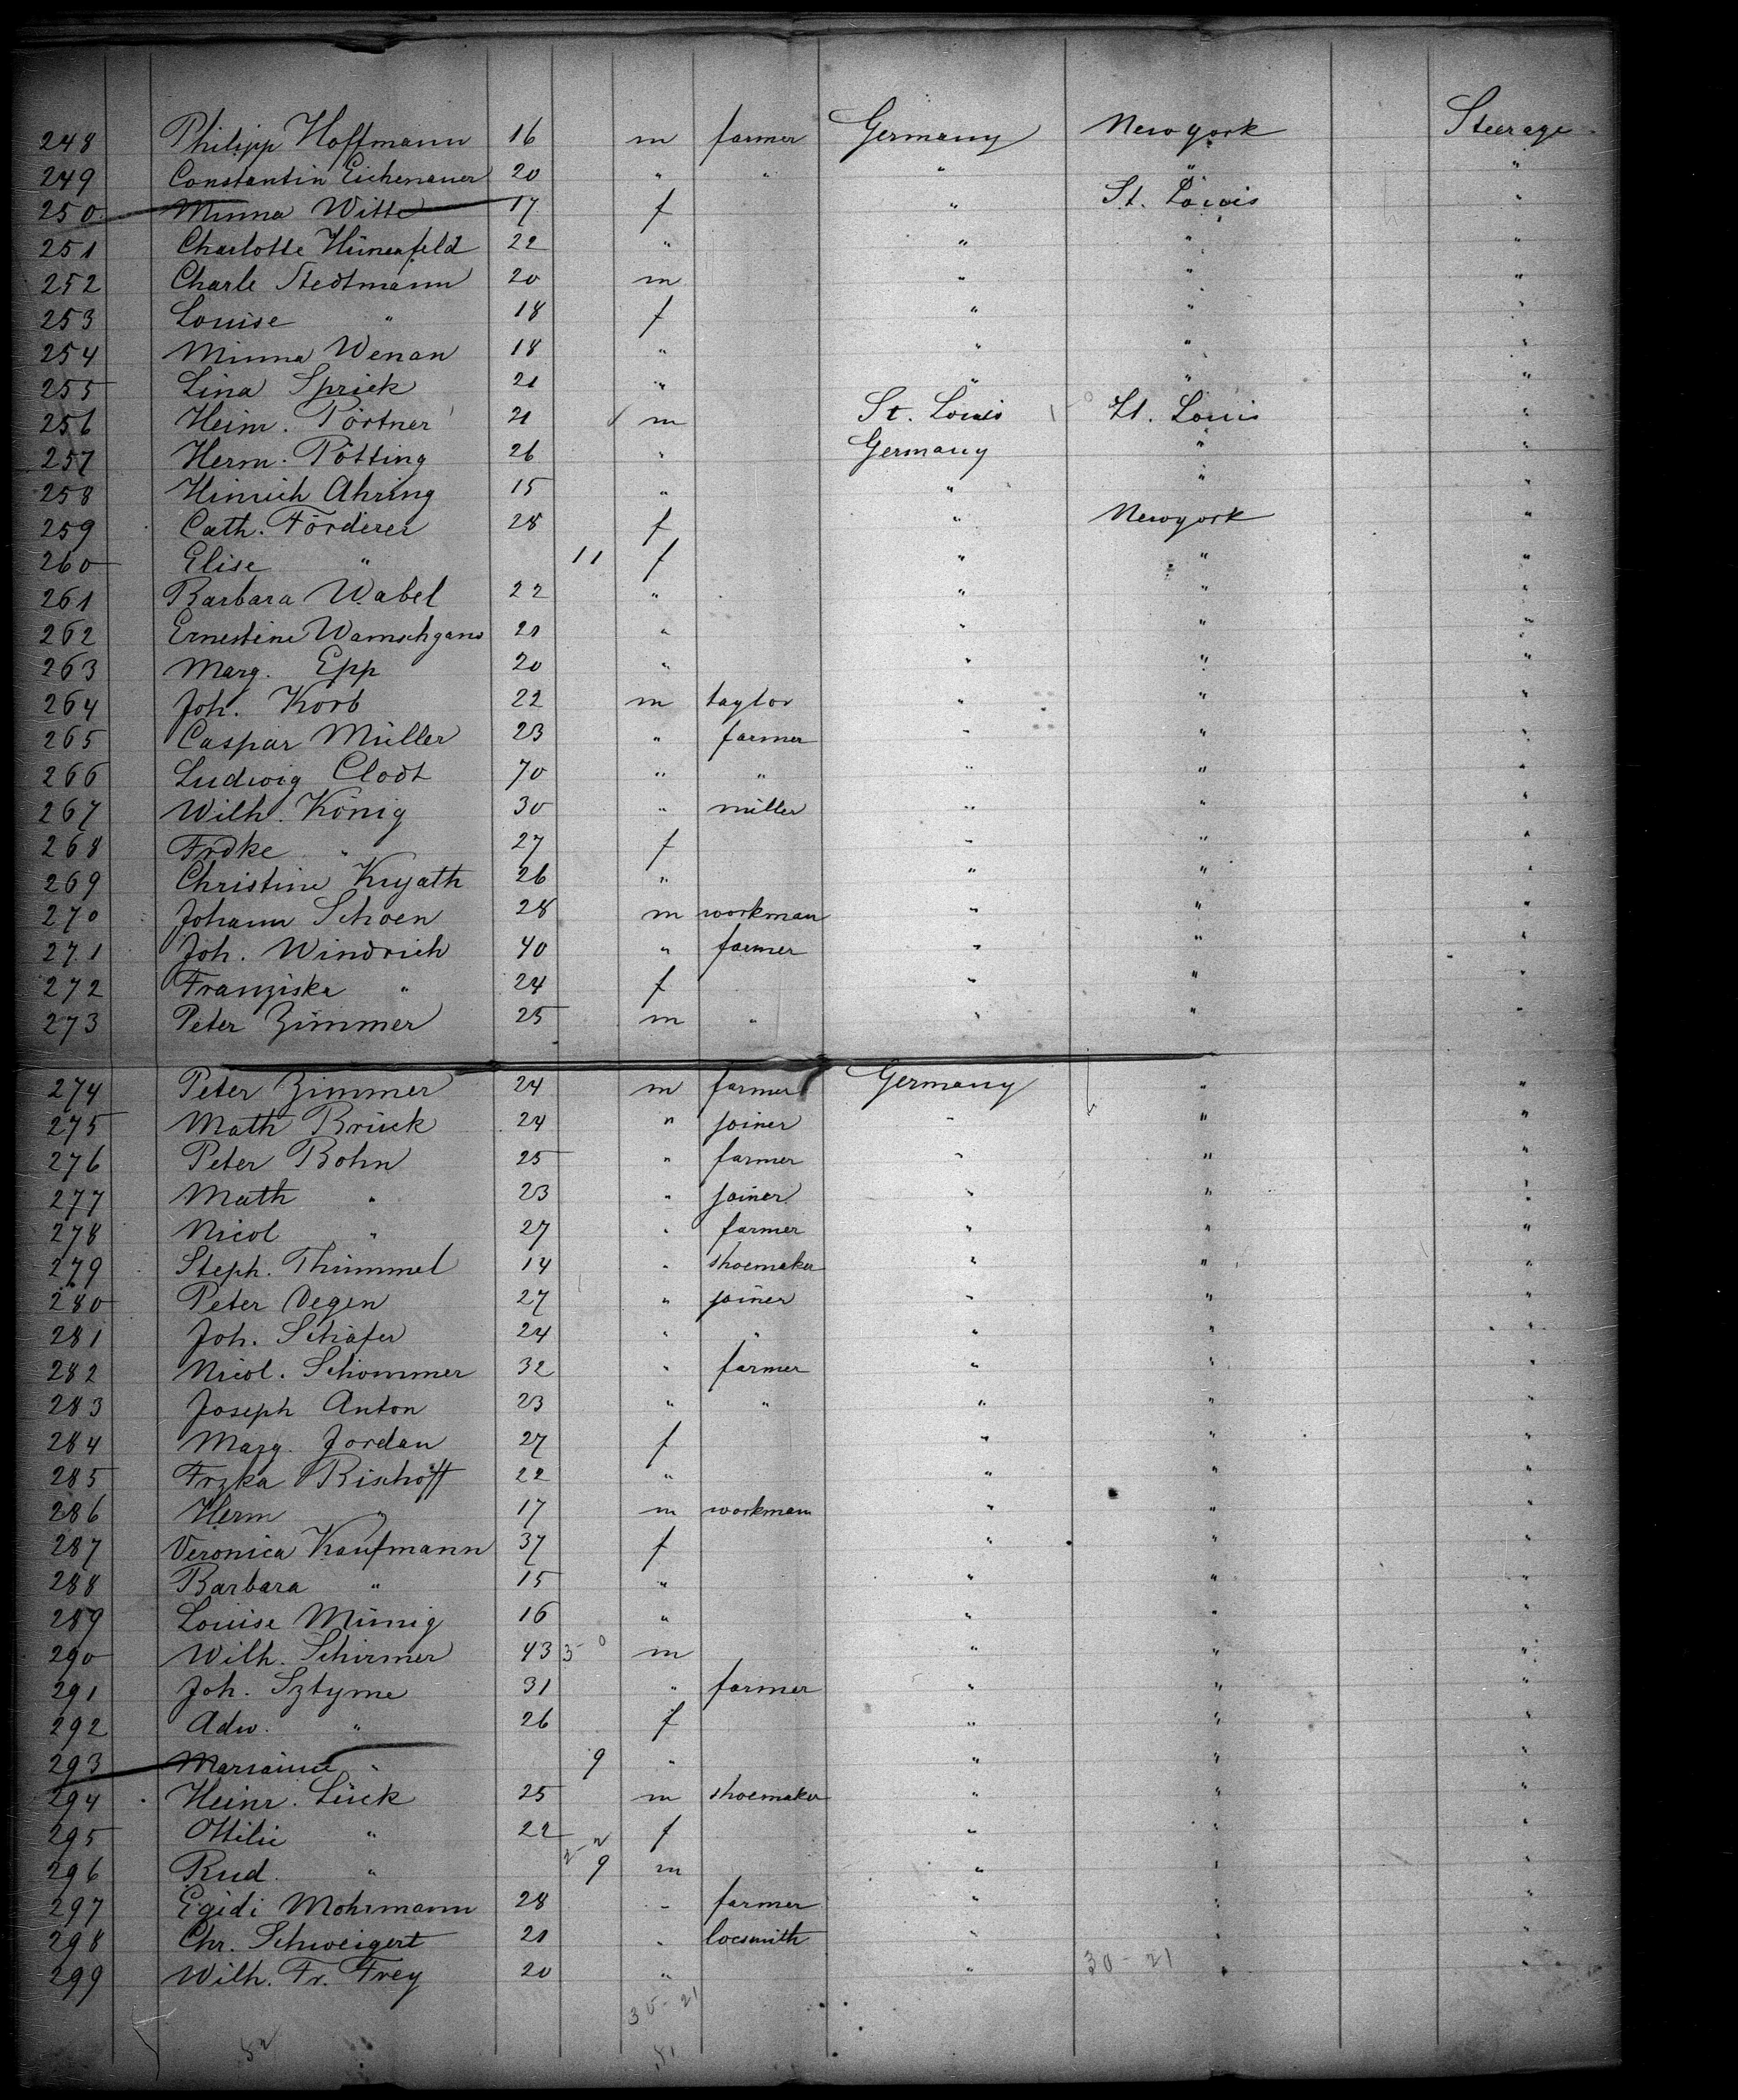 248 Philipp Hoffmann 16 m farmer Germany New york Steerage
249 Constantin Eichenauer 20 " " " " "
250 Minna Witte 17 f " St. Louis "
251 Charlotte Hünerfeld 22 " " " "
252 Charle Stedtmann 20 m " " "
253 Louise " 18 f " " "
254 Minna Wenan 18 " " " "
255 Lina Sprick 21 " " " "
256 Heinr. Pörtner 21 m St. Louis St. Louis "
257 Herm. Pötting 26 " Germany " "
258 Hinrich Ahring 15 " " " "
259 Cath. Förderer 28 f " Newyork "
260 Elise " 11 f " " "
261 Barbara Wabel 22 " " " "
262 Ernestine Wamschgans 21 " " " "
263 Marg. Epp 20 " " " "
264 Joh. Korb 22 m taylor " " "
265 Caspar Müller 23 " farmer " " "
266 Ludwig Clodt 70 " " " " "
267 Wilh. König 30 " miller " " "
268 Frdke " 27 f " " "
269 Christine Kryath 26 " " " "
270 Johann Schoen 28 m workman " " "
271 Joh. Windrich 40 " farmer " " "
272 Franziska " 24 f " " "
273 Peter Zimmer 25 m " " " "
274 Peter Zimmer 24 m farmer Germany " "
275 Math Brück 24 " joiner " " "
276 Peter Bohn 25 " farmer " " "
277 Math " 23 " joiner " " "
278 Nicol " 27 " farmer " " "
279 Steph. Thümmel 14 " shoemaker " " "
280 Peter Degen 27 " joiner " " "
281 Joh. Schäfer 24 " " " " "
282 Nicol. Schommer 32 " farmer " " "
283 Joseph Anton 23 " " " " "
284 Marg. Jordan 27 f " " "
285 Frzka Bischoff 22 " " " "
286 Herm " 17 m workman " " "
287 Veronica Kaufmann 37 f " " "
288 Barbara " 15 " " " "
289 Louise Münig 16 " " " "
290 Wilh. Schirmer 43 m " " "
291 Joh. Sztyme 31 " farmer " " "
292 Adw. " 26 f " " "
293 Marianne " 9 " " " "
294 Heinr. Lück 25 m shoemaker " " "
295 Ottilie " 22 f " " "
296 Rud. " 9 m " " "
297 Egidi Mohrmann 28 " farmer " " "
298 Chr. Schweigert 21 " locsmith " " "
299 Wilh. Fr. Frey 20 " " " "
30 - 21
30 - 21
52 51